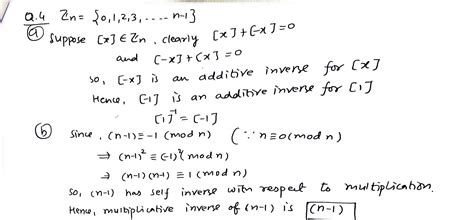 Q.4 Zn = {0,1,2,3, ..... n-1}
(a) Suppose [x] ∈ Zn, clearly [x]+[-x]=0
and [-x]+[x]=0
So, [-x] is an additive inverse for [x]
Hence, [-1] is an additive inverse for [1]
[1]⁻¹ = [-1]
(b) Since, (n-1) ≡ -1 (mod n) (∵ n ≡ 0 (mod n)
⇒ (n-1)² ≡ (-1)² (mod n)
⇒ (n-1)(n-1) ≡ 1 (mod n)
So, (n-1) has self inverse with respect to multiplication.
Hence, multiplicative inverse of (n-1) is (n-1)